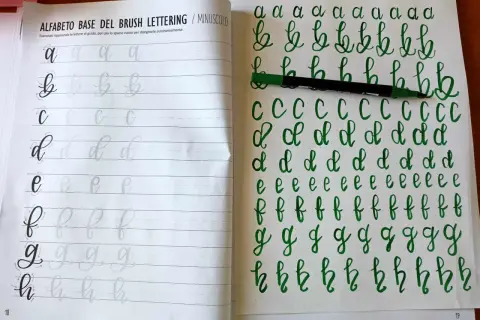 ALFABETO BASE DEL BRUSH LETTERING / MINUSCOLO
a a a a
b b b b
c c c
d d d d
e e e
f f f f
g g g g
h h h h
18
a a a a a a a a a a a
b b b b b b b b
b b b b b b b b b
c c c c c c c c c c c
d d d d d d d d
d d d d d d d d d
e e e e e e e e e e e e e
f f f f f f f f f f f
g g g g g g g g g
h h h h h h h h h
19